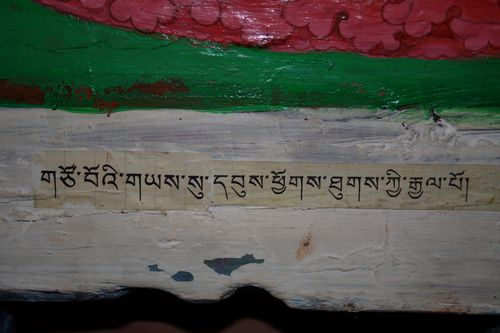 གཙོ་བོའི་གཡས་སུ་དབུས་ཕྱོགས་ཐུགས་ཀྱི་རྒྱལ་པོ།